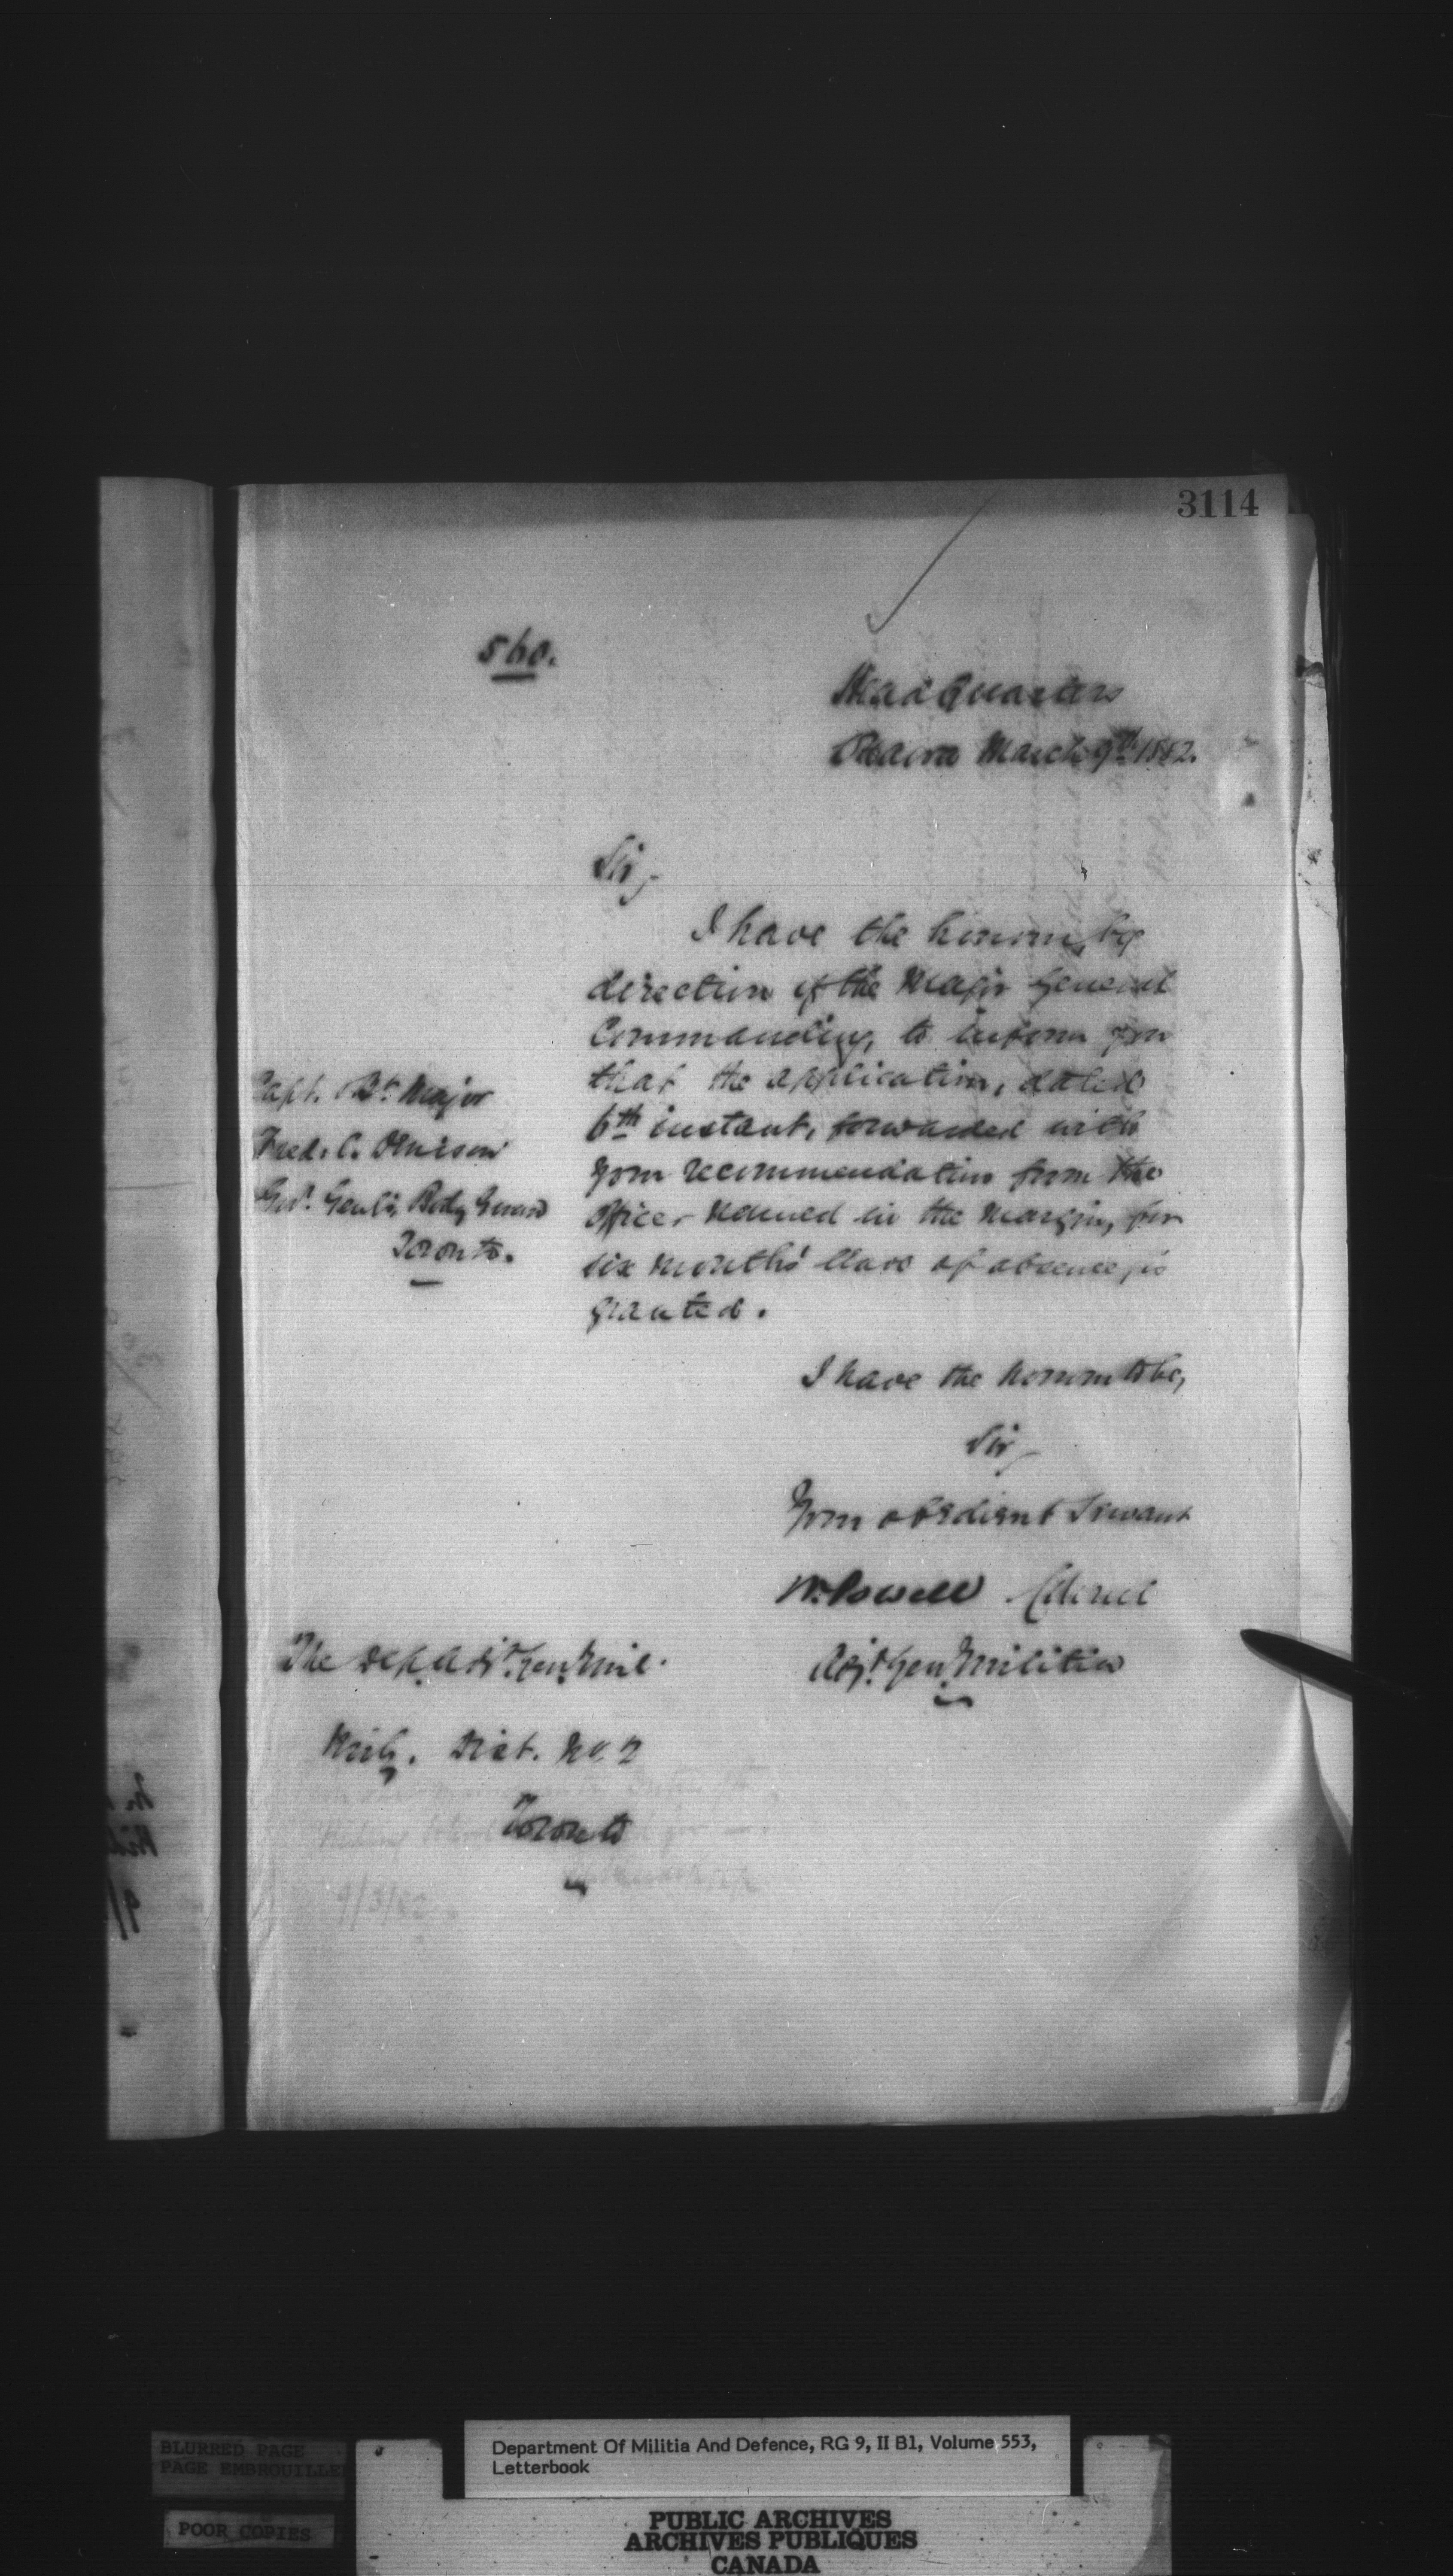 3114
560.
Head Quarters
Ottawa March 9th 1882.
Sir,
I have the honour, by
direction of the Major General
Commanding, to inform you
that the application, dated
6th instant, forwarded with
your recommendation from the
Officer named in the margin, for
six months' leave of absence, is
granted.
Capt. Bt. Major
Fred. C. Denison
Gov. Genl's Body Guard
Toronto.
I have the honour to be,
Sir,
Your obedient Servant
W. Powell Colonel
Adjt. Gen. Militia
The Dep. Adjt. Gen. Mil.
Mily. Dist. No. 2
Toronto
9/3/82
BLURRED PAGE
PAGE EMBROUILLEE
POOR COPIES
Department Of Militia And Defence, RG 9, II B1, Volume 553,
Letterbook
PUBLIC ARCHIVES
ARCHIVES PUBLIQUES
CANADA